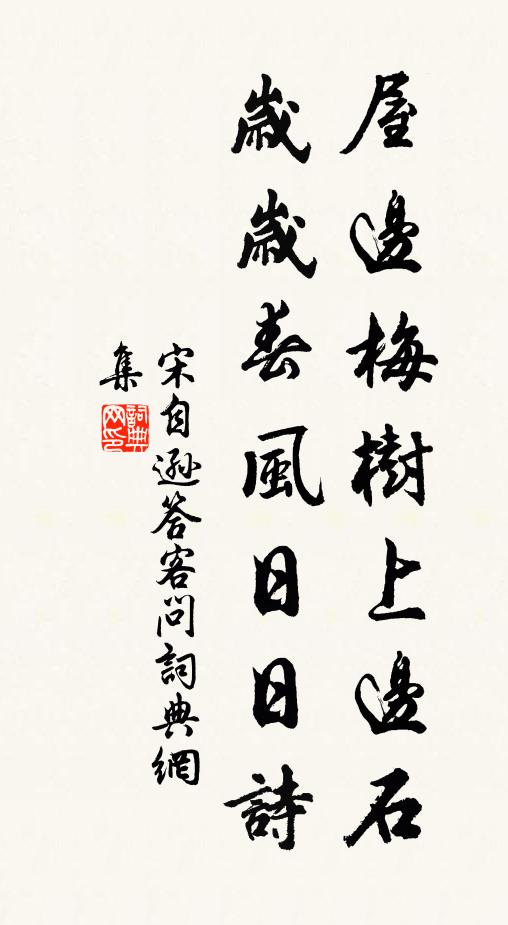 屋邊梅樹上邊石
歲歲春風日日詩
宋自遜答客問詞典網
集
詞典网印